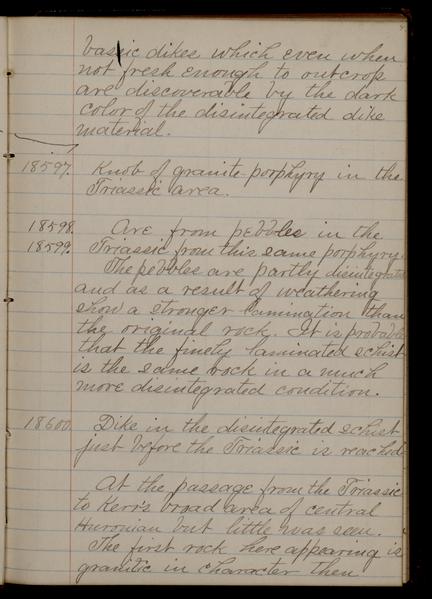 bassic dikes which even when
not fresh enough to outcrop
are discoverable by the dark
color of the disintegrated dike
material.
18597. Knob of granite-porphyry in the
Triassic area.
18598. Are from pebbles in the
18599. Triassic from this same porphyry.
The pebbles are partly disintegrated
and as a result of weathering
show a stronger lamination than
the original rock. It is probable
that the finely laminated schist
is the same rock in a much
more disintegrated condition.
18600. Dike in the disintegrated schist
just before the Triassic is reached
At the passage from the Triassic
to Kerr's broad area of central
Huronian but little was seen.
The first rock here appearing is
granitic in character then